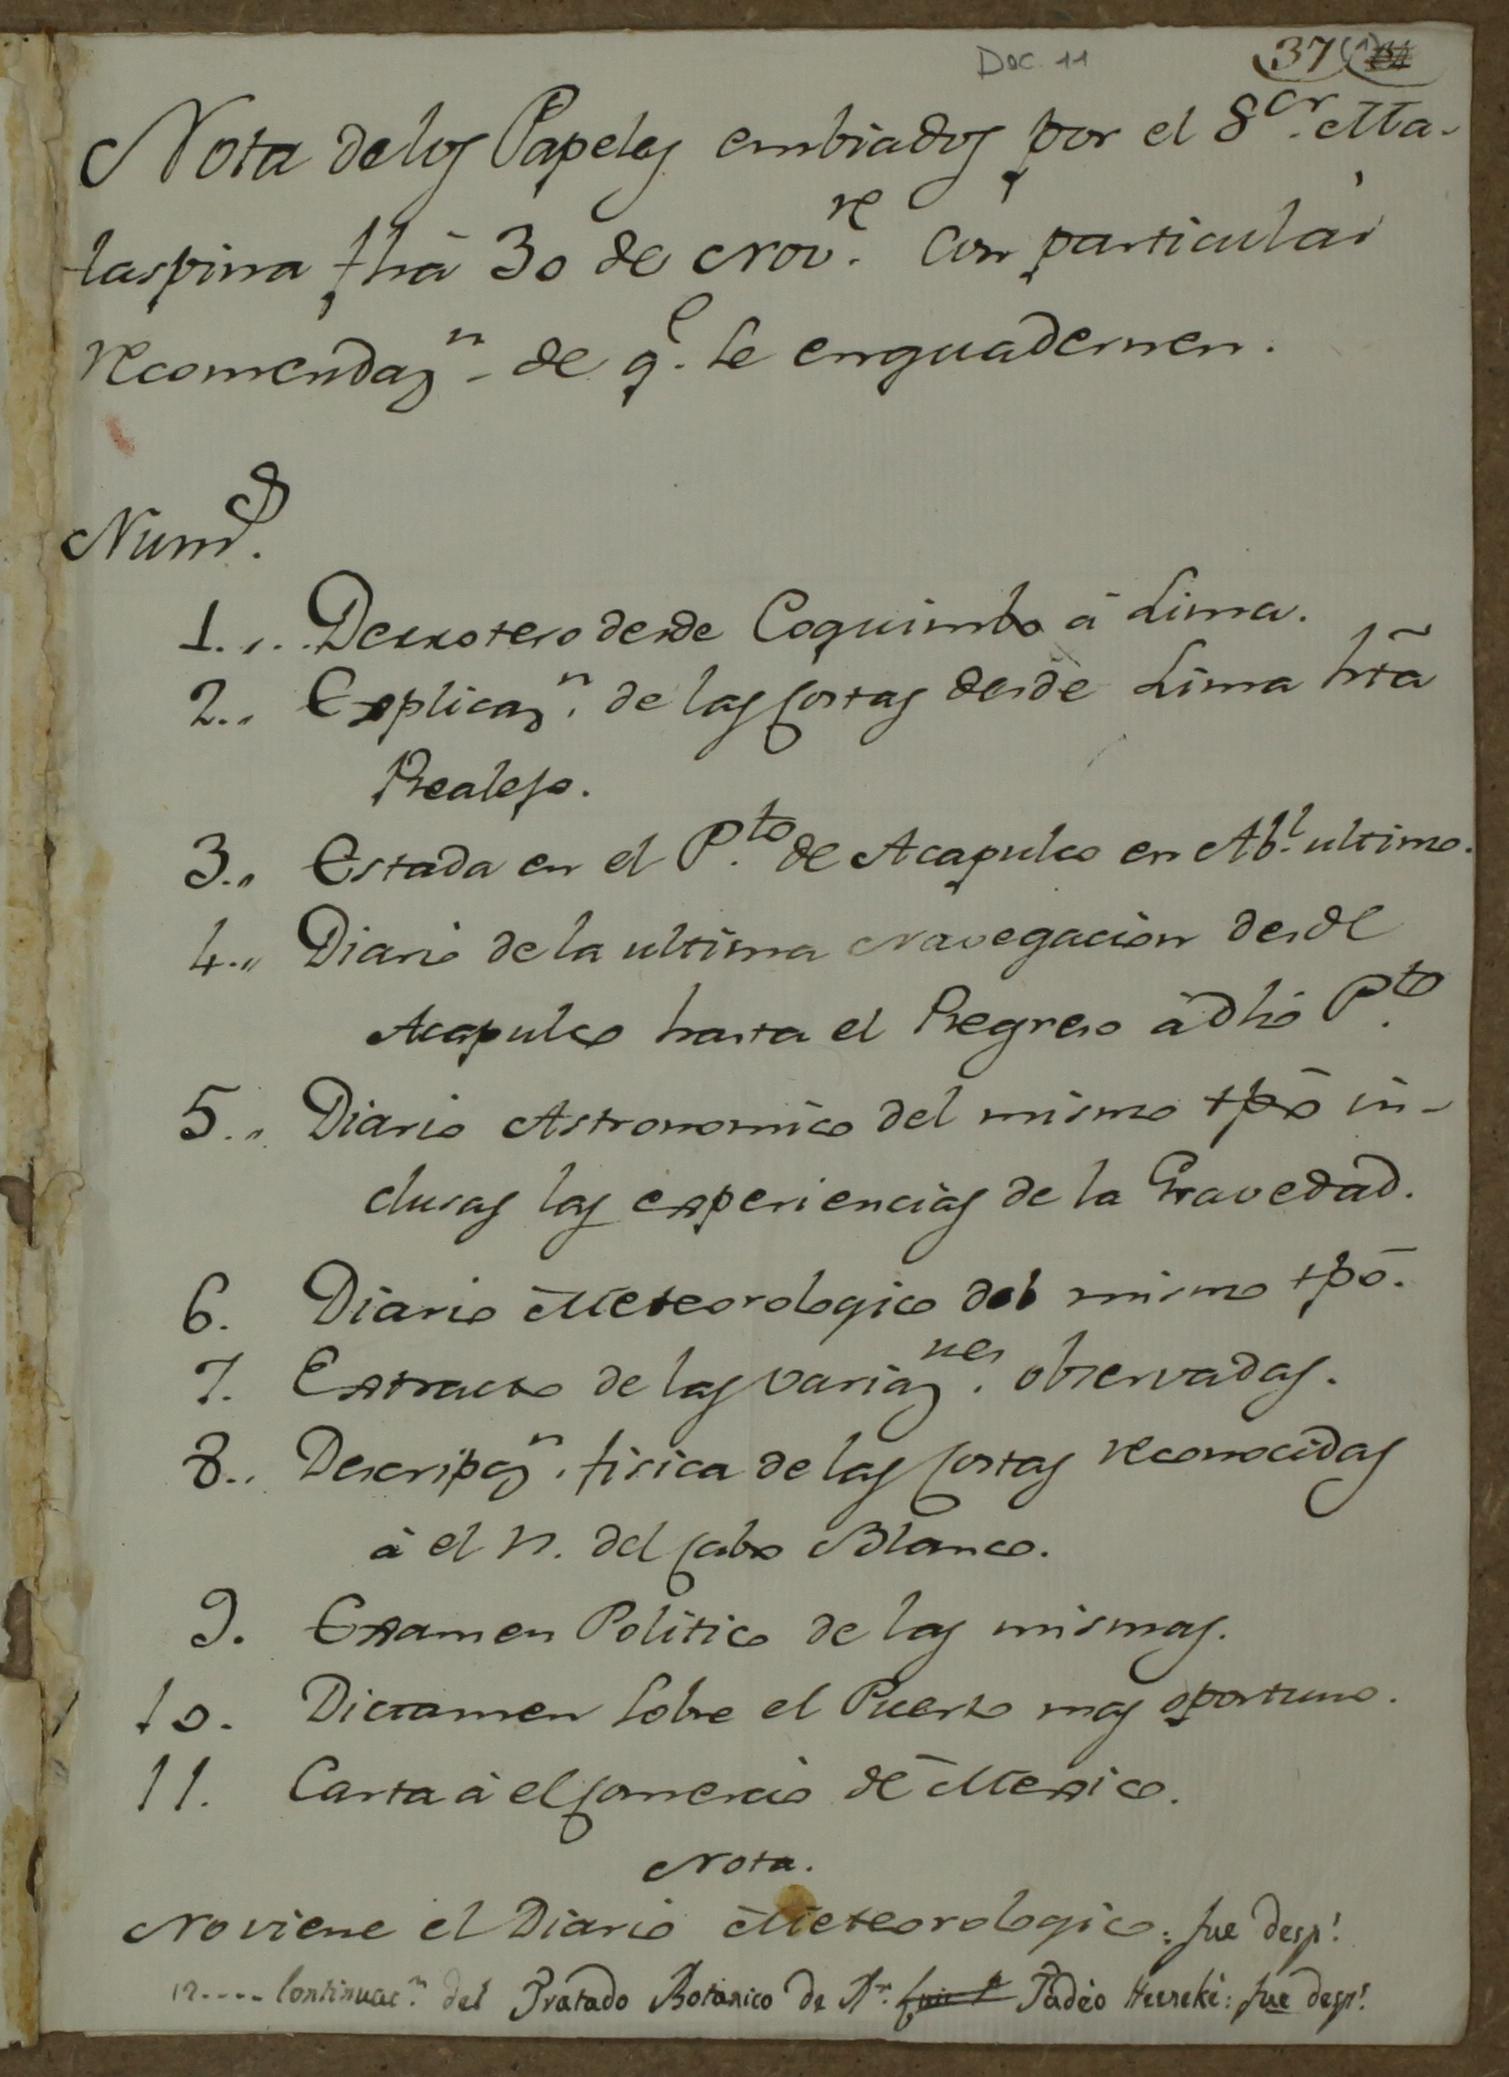 Doc. 11
37 (1)
Nota de los Papeles embiados por el S.or Ma-
laspina fhã 30 de Nov.re con particular
recomendaz.n de q.e se enquadernen.
Num.s
1... Derrotero desde Coquimbo à Lima.
2.. Explicaz.n de las Costas desde Lima htã
Realejo.
3.. Estada en el P.to de Acapulco en Ab.l ultimo.
4.. Diario de la ultima Navegacion desde
Acapulco hasta el Regreso à dho P.to
5.. Diario Astronomico del mismo tpõ in-
clusas las experiencias de la Gravedad.
6. Diario Meteorologico del mismo tpõ.
7. Extracto de las variaz.nes observadas.
8.. Descripz.n fisica de las Costas reconocidas
à el N. del Cabo Blanco.
9. Examen Politico de las mismas.
10. Dictamen sobre el Puerto mas oportuno.
11. Carta à el Comercio de Mexico.
Nota.
No viene el Diario Meteorologico: fue desp.s
12.... Continuac.n del Tratado Botanico de D.n Tadèo Heenekè: fue desp.s